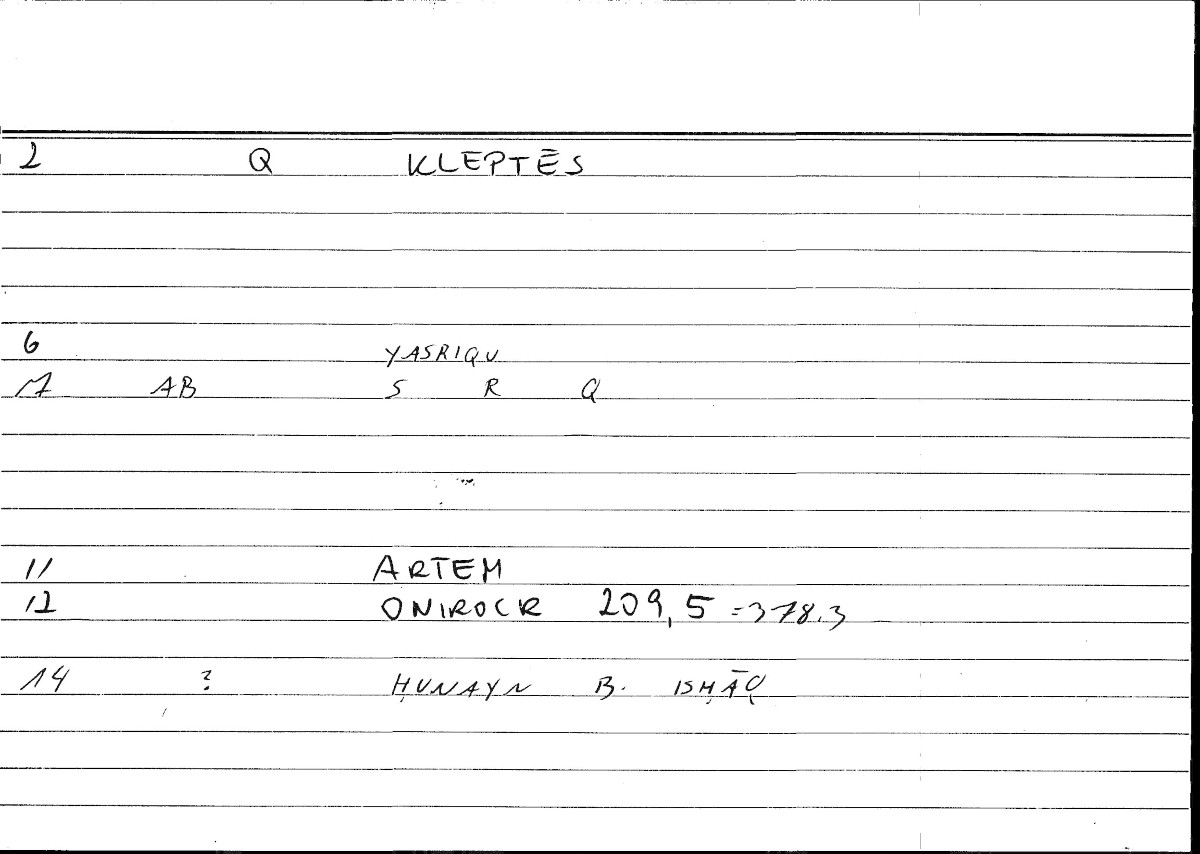 2 Q KLEPTĒS
6 YASRIQU
7 AB S R Q
11 ARTEM
12 ONIROCR 209,5 =378.3
14 ? ḤUNAYN B. ISḤĀQ